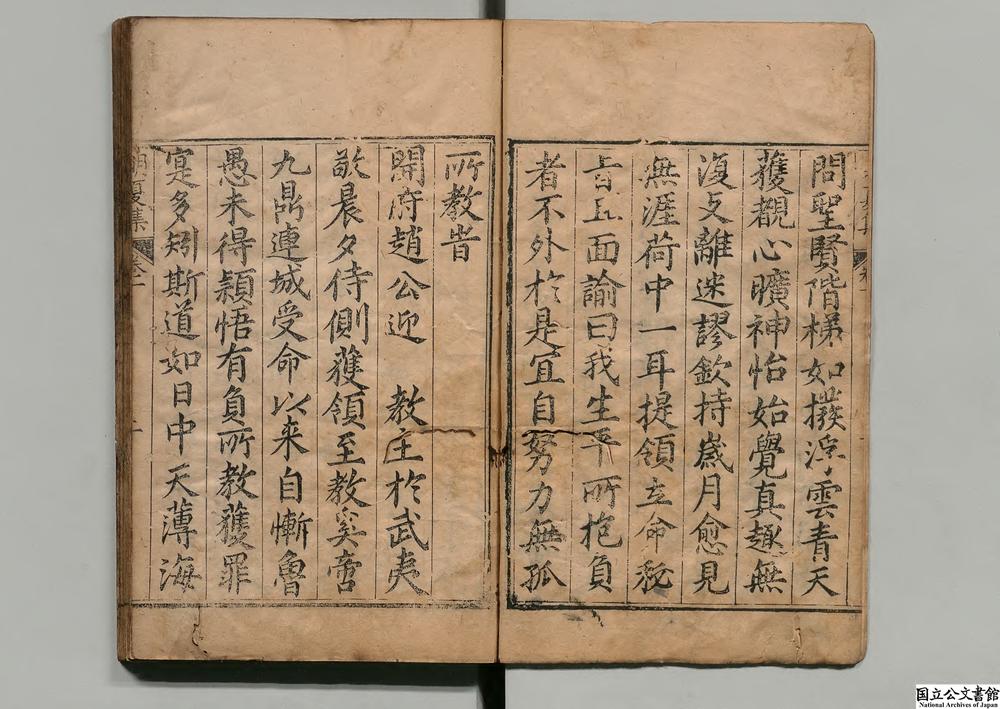 問聖賢階梯如撥浮雲青天
獲覩心曠神怡始覺真趣無
復支離迷謬欽持歲月愈見
無涯荷中一耳提領立命稅
旨且面諭曰我生平所抱負
者不外於是宜自努力無孤
所教昔
開府趙公迎　教主於武夷
歆晨夕侍側獲領至教奚啻
九鼎連城受命以来自慚魯
愚未得穎悟有負所教獲罪
寔多矧斯道如日中天薄海
夏集
國立公文書館
National Archives of Japan